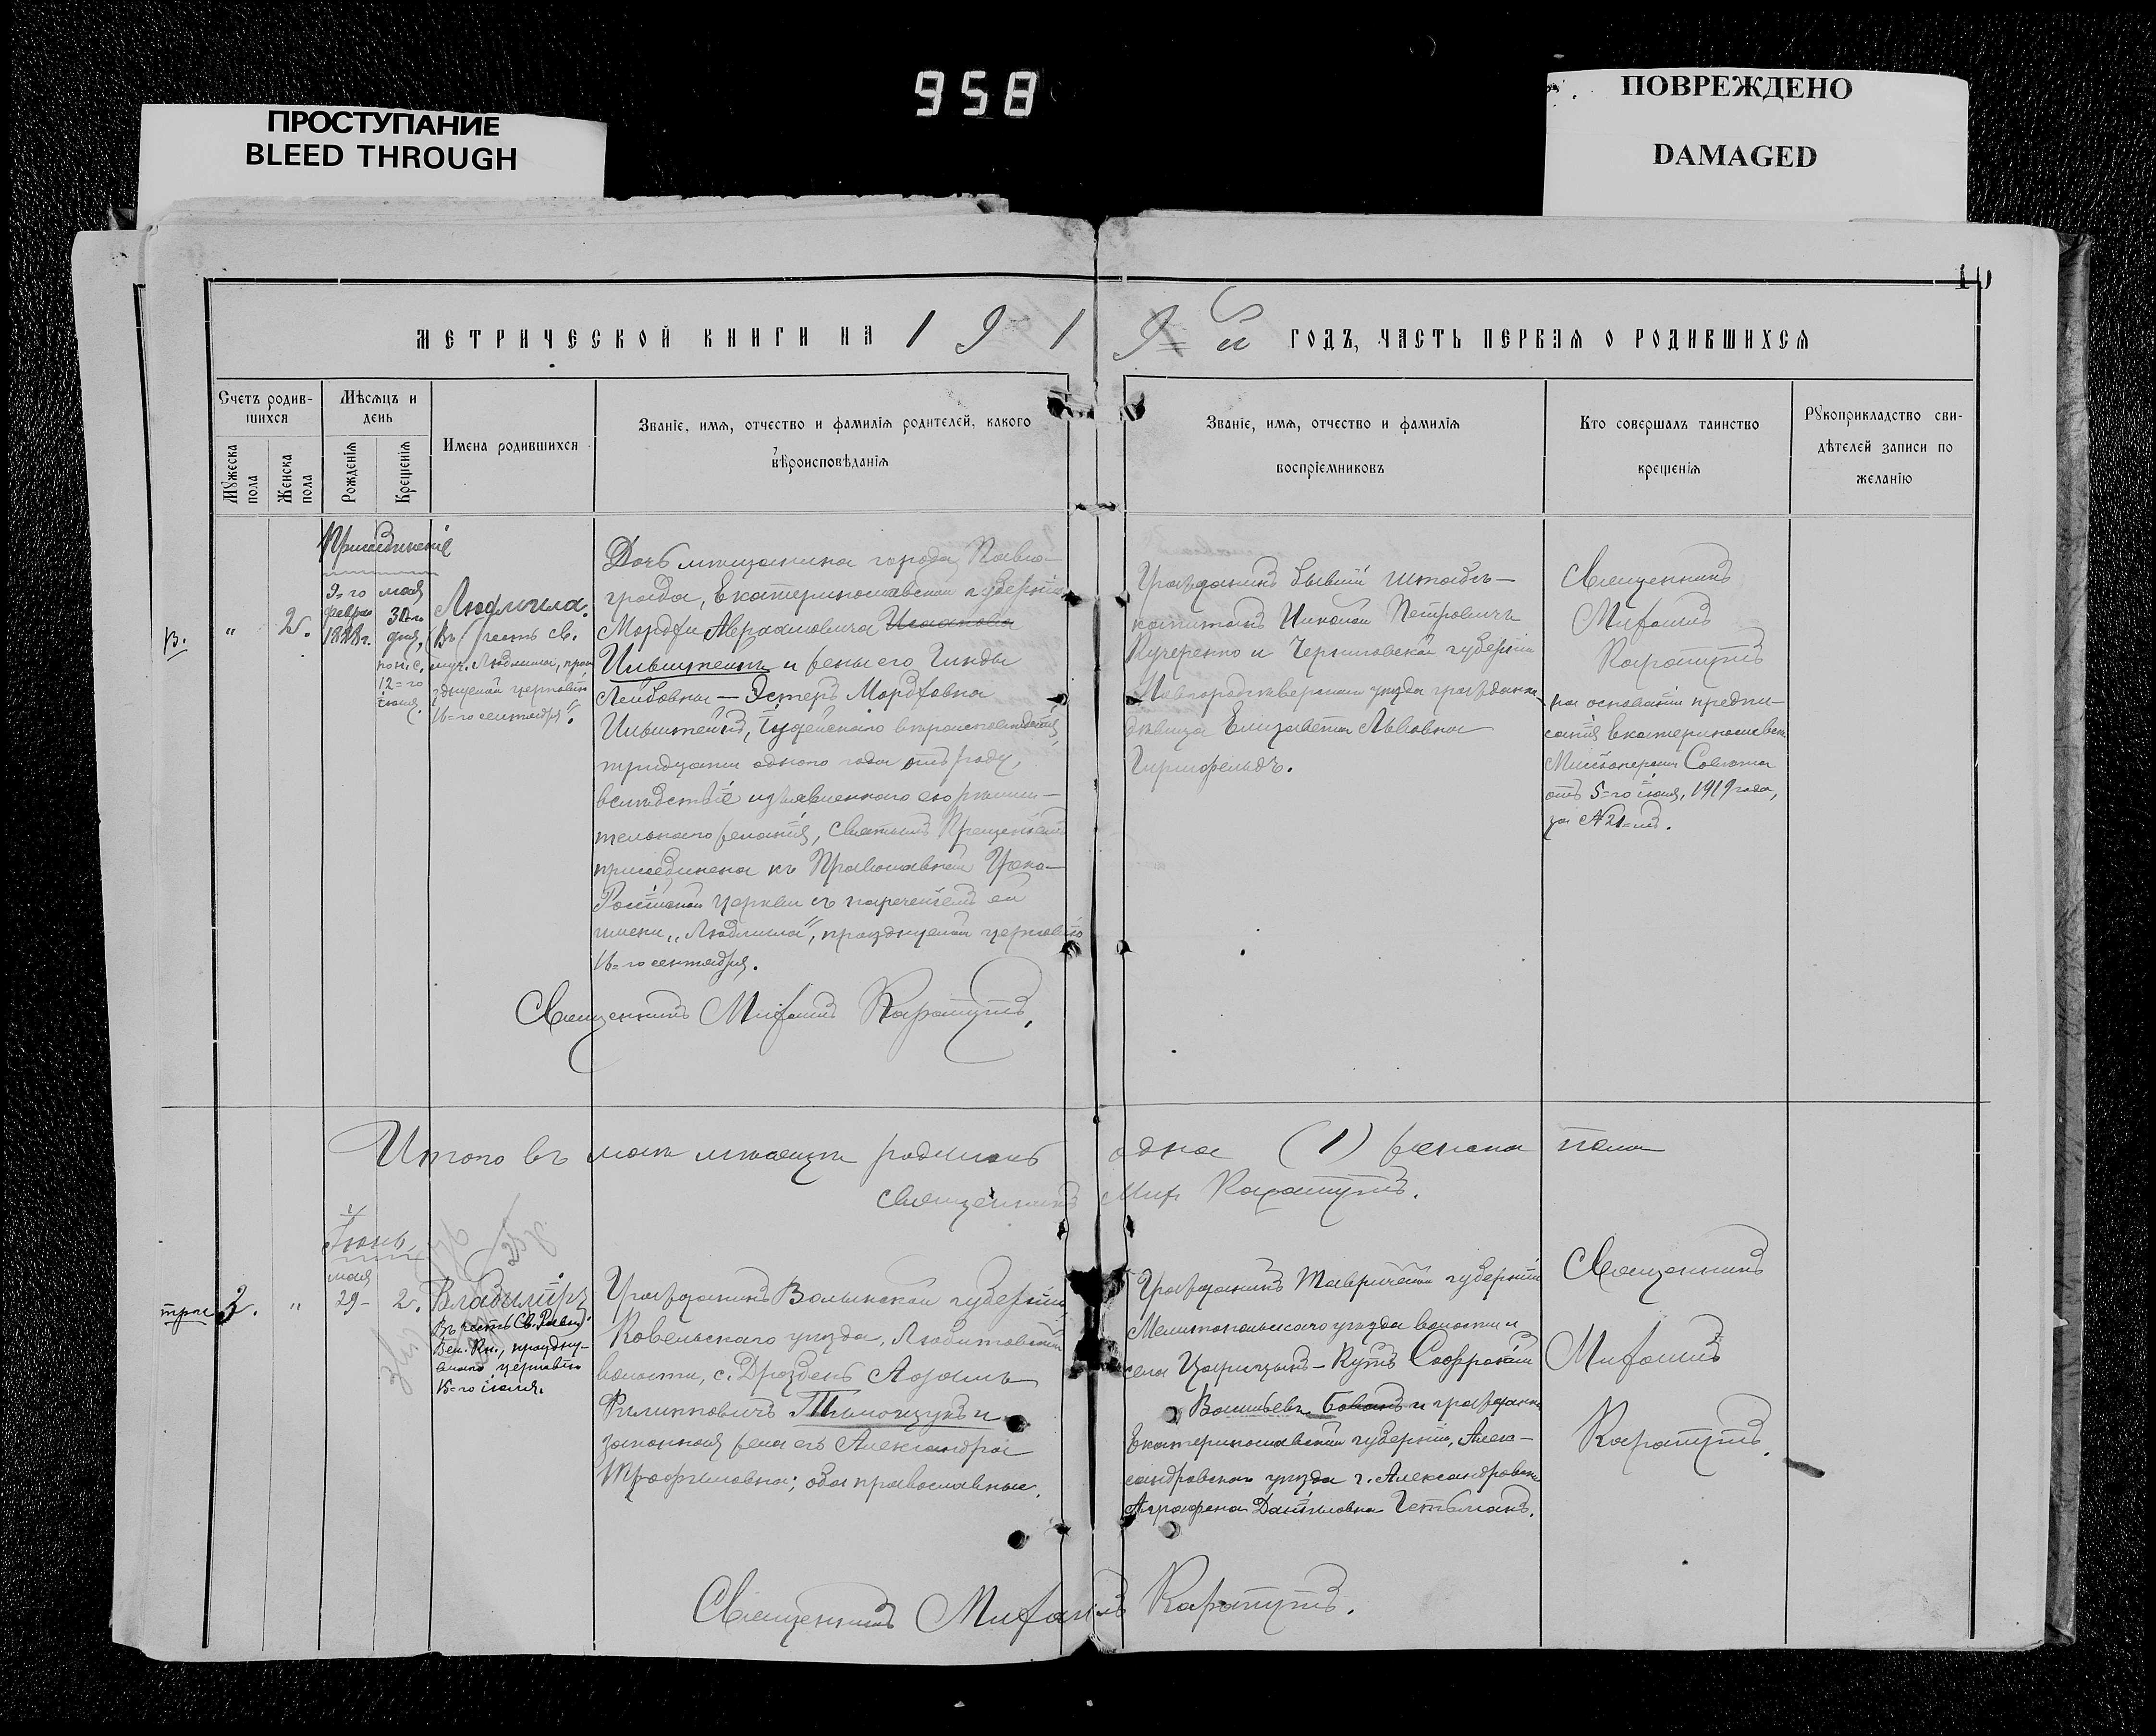 958
ПРОСТУПАНИЕ
BLEED THROUGH
ПОВРЕЖДЕНО
DAMAGED
10
МЕТРИЧЕСКОЙ КНИГИ НА 1919й ГОДЪ, ЧАСТЬ ПЕРВАЯ О РОДИВШИХСЯ
Счетъ родив-
шихся
Мужеска пола
Женска пола
Мѣсяцъ и
день
Рожденія
Крещенія
Имена родившихся
Званіе, имя, отчество и фамилія родителей, какого
вѣроисповѣданія
Званіе, имя, отчество и фамилія
воспріемниковъ
Кто совершалъ таинство
крещенія
Рукоприкладство сви-
дѣтелей записи по
желанію
Присоединеніе
в.
"
2.
9=го
февра
1888г.
мая
30го
дня,
по н. с.
12=го
іюня.
Людмила.
Въ честь св.
муч. Людмилы, праз
днуемой церковію
16=го сентября".
Дочь мѣщанина города Павло-
града, Екатеринославской губерніи
Мордки Абрамовича
и жены его Гинды
Лейбовны — Эстеръ Мордковна
Іудейскаго вѣроисповѣданія,
тридцати одного года отъ роду,
вслѣдствіе изъявленнаго ею рѣши-
тельнаго желанія, Святымъ Крещеніемъ
присоединена къ Православной Греко-
Россійской Церкви съ нареченіемъ ей
имени „Людмила", празднуемой церковію
16=го сентября.
Священникъ Михаилъ Карапутъ.
Гражданинъ бывшій штабсъ-
капитанъ Николай Петровичъ
Кучеренко и Черниговской губерніи
Новгородсѣверскаго уѣзда гражданка
дѣвица Елизавета Львовна
Гиршфельдъ.
Священникъ
Михаилъ
Карапутъ
на основаніи предпи-
санія Екатеринославск.
Миссіонерскаго Совѣта
отъ 5=го іюня, 1919 года,
за №21=мъ.
Итого въ маѣ мѣсяцѣ родилась одна (1) женска пола
Священникъ Мих. Карапутъ.
Іюнь
3.
"
мая
29-
2.
Владиміръ
Въ честь Св. Равн.
Вел. Кн., праздну-
емаго церковію
15=го іюля.
Гражданинъ Волынской губерніи,
Ковельскаго уѣзда, Любитовской
волости, с. Дроздень
Филипповичъ Тимощукъ и
законная жена его Александра
Трофимовна; оба православные.
Гражданинъ Таврической губерніи
Мелитопольскаго уѣзда волости и
села Царицынъ-Кутъ Софроній
Васильевъ и гражданка
Екатеринославской губерніи, Алек-
сандровскаго уѣзда г. Александровска
Агрофена Даніиловна Гетьманъ.
Священникъ
Михаилъ
Карапутъ.
Священникъ Михаилъ Карапутъ.